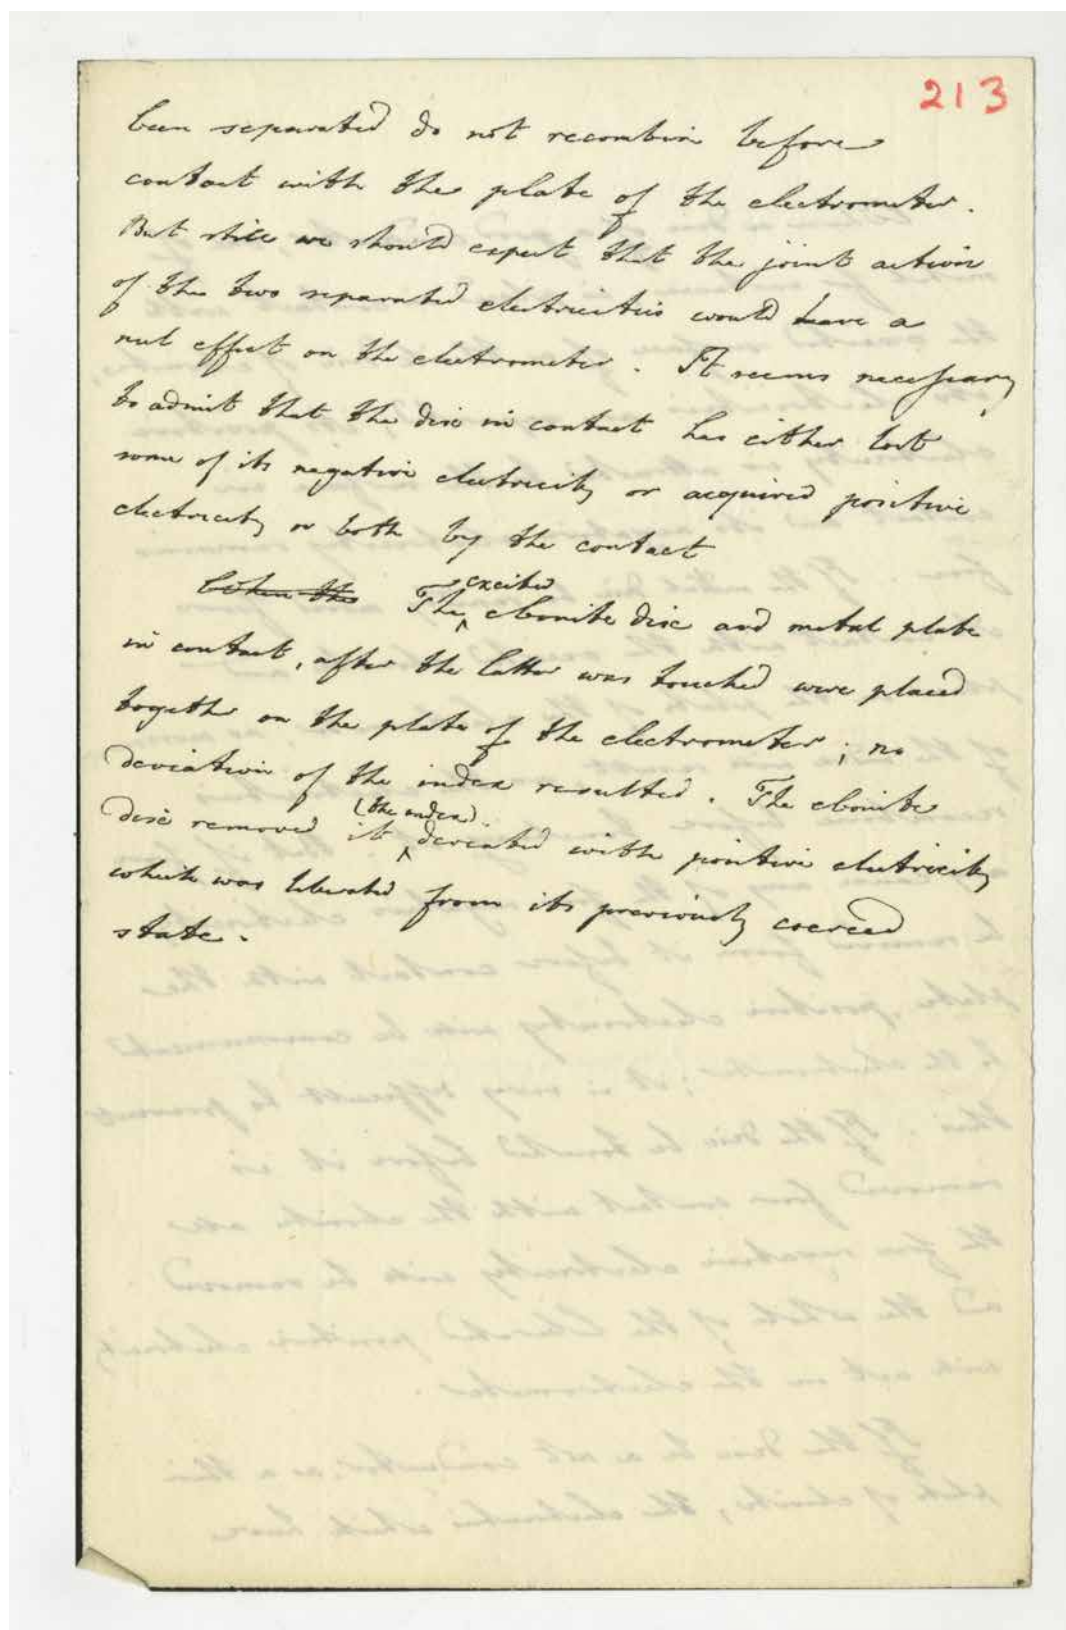 213
been separated do not recombine before
contact with the plate of the electrometer.
But still we should expect that the joint action
of the two separated electricities would leave a
null effect on the electrometer. It seems necessary
to admit that the disc in contact has either lost
some of its negative electricity or acquired positive
electricity or both by the contact
When the The excited ebonite disc and metal plate
in contact, after the latter was touched were placed
together on the plate of the electrometer; no
deviation of the index resulted. The ebonite
disc removed it (the index) deviated with positive electricity
which was liberated from its previously coerced
state.